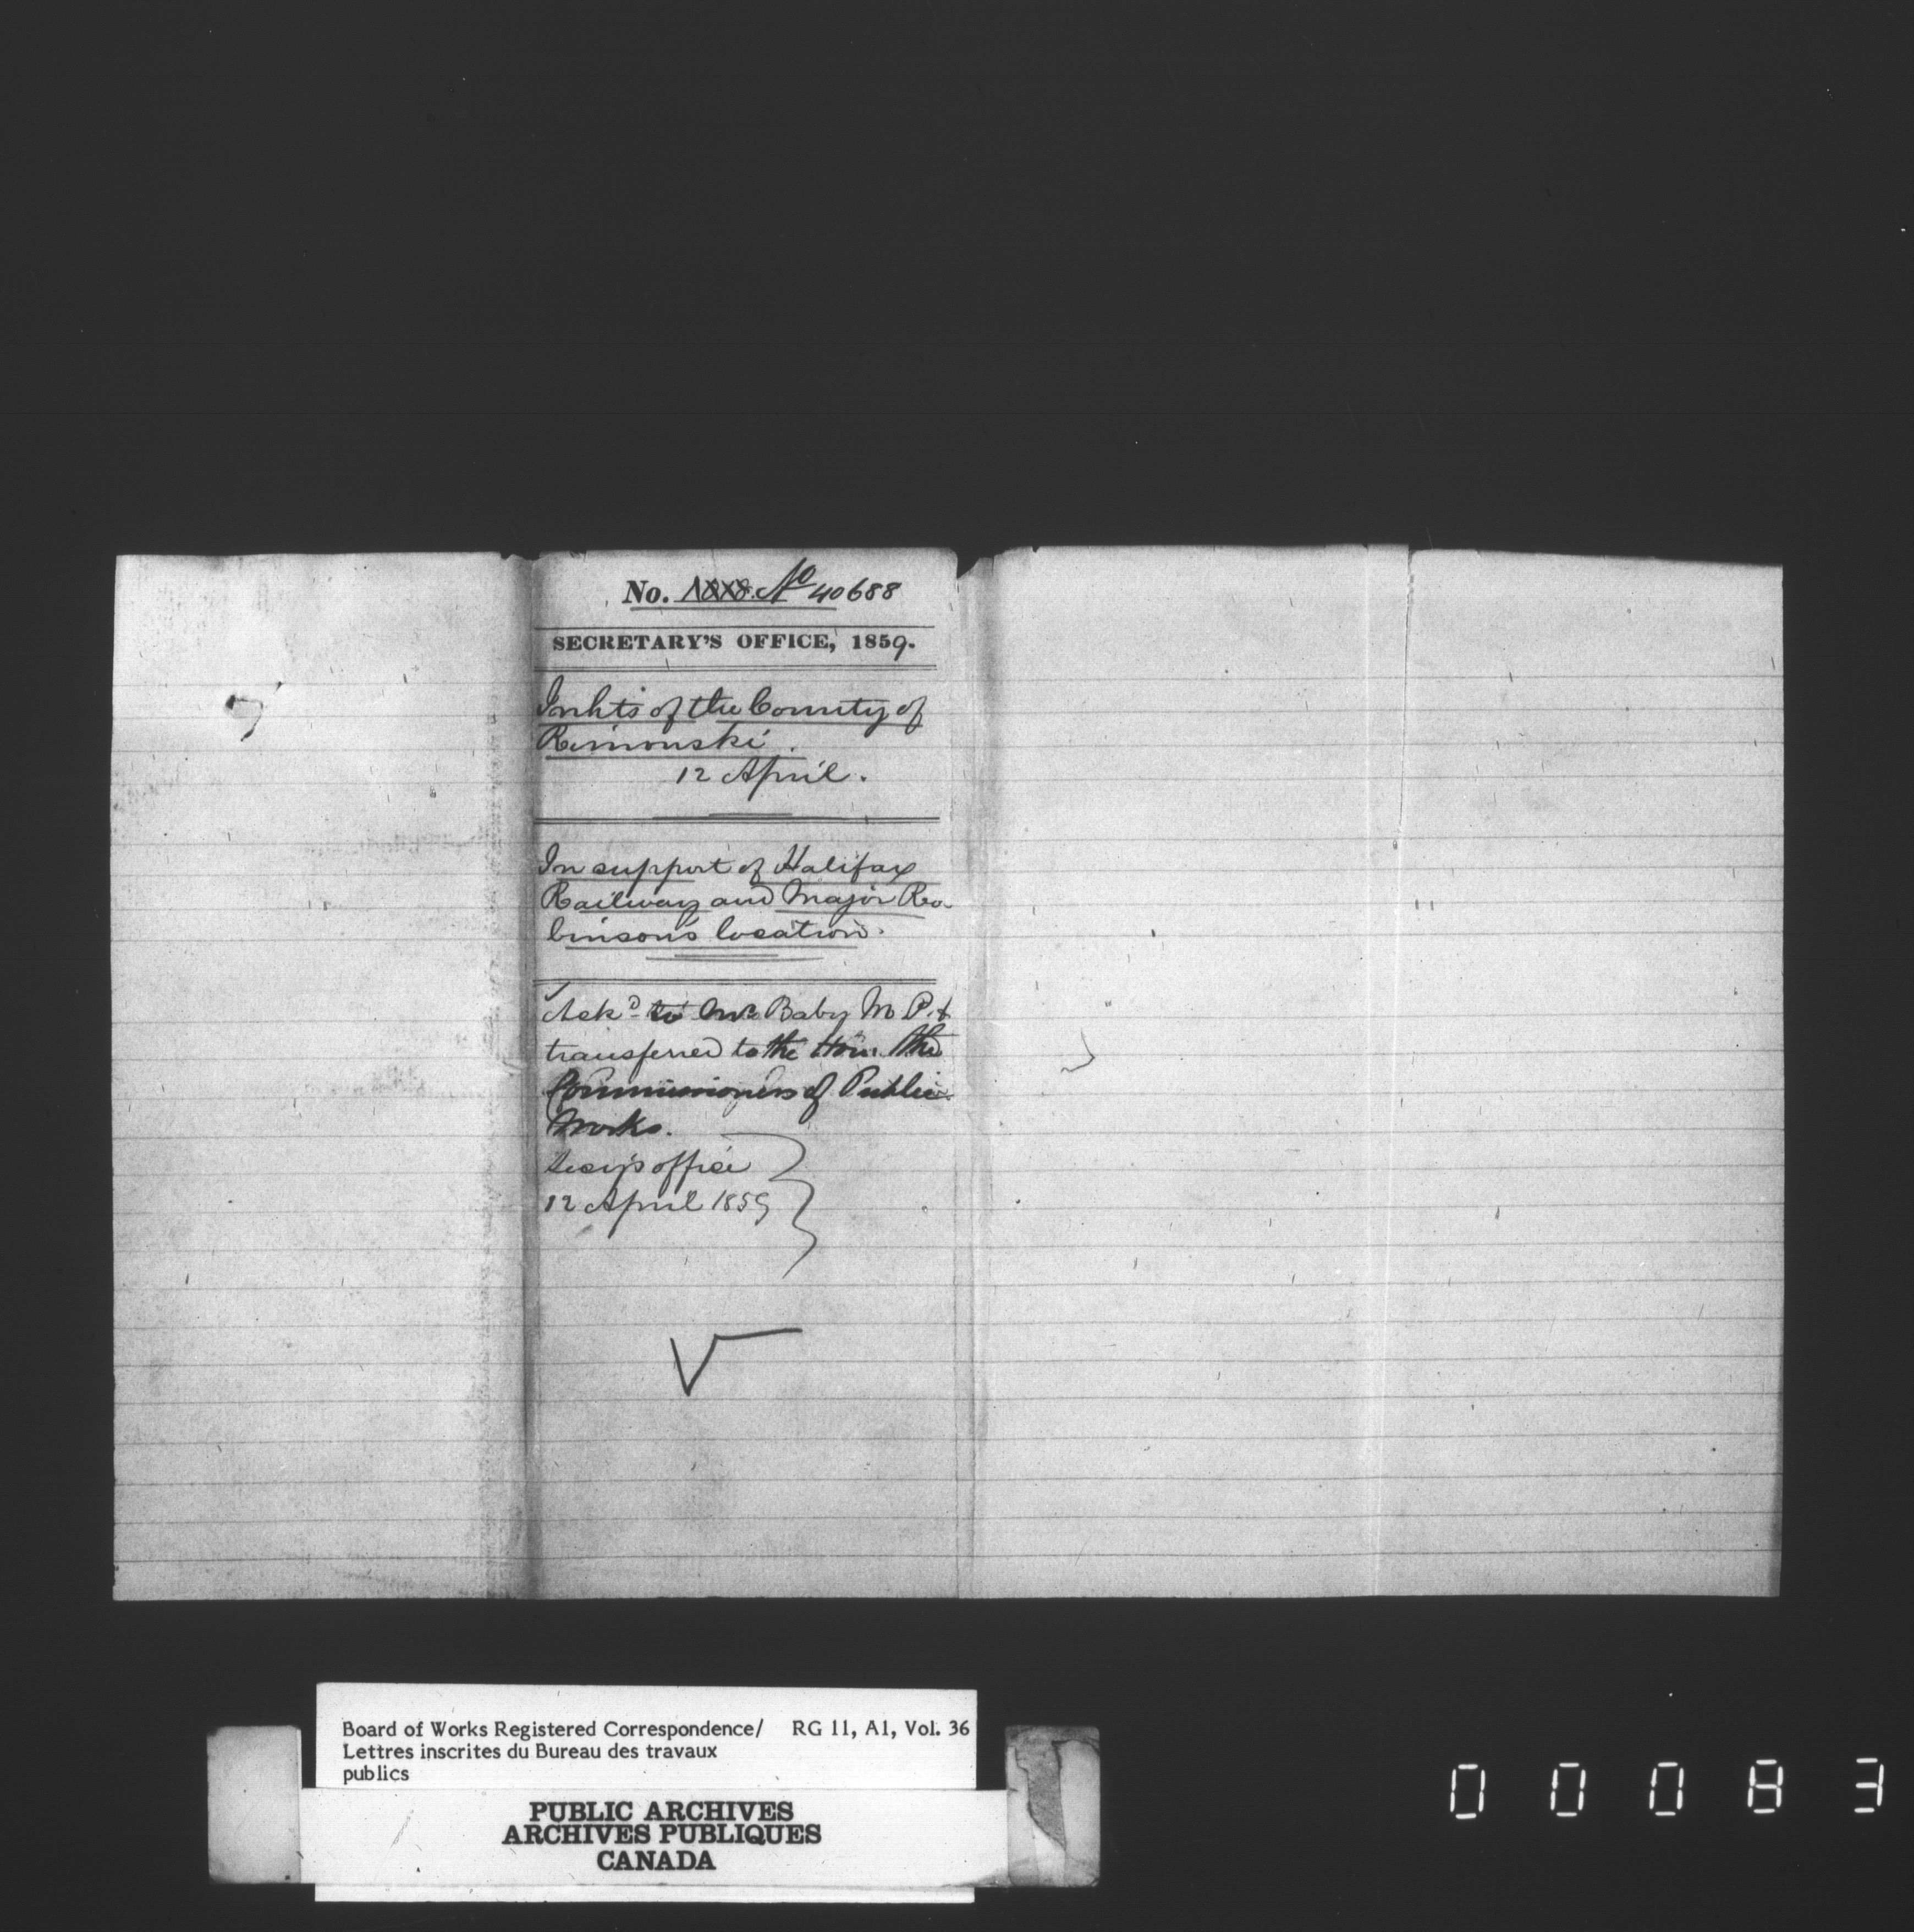 No. 1888. No 40688
SECRETARY'S OFFICE, 1859.
Inhts of the County of
Rimouski.
12 April.
In support of Halifax
Railway and Major Ro-
binson's location.
Ackd to Mr Baby M. P. &
transferred to the Hon. the
Commissioners of Public
Works.
Secy's office
12 April 1859
Board of Works Registered Correspondence/ RG 11, A1, Vol. 36
Lettres inscrites du Bureau des travaux
publics
PUBLIC ARCHIVES
ARCHIVES PUBLIQUES
CANADA
00083